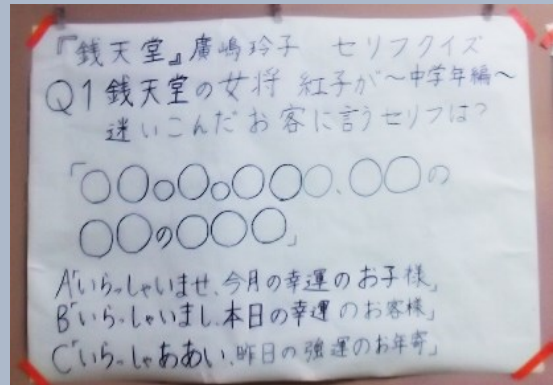 『銭天堂』廣嶋玲子 セリフクイズ
Q1銭天堂の女将 紅子が〜中学年編〜
迷いこんだお客に言うセリフは?
「○○○○○○○○、○○の
○○の○○○」
A「いらっしゃいませ、今月の幸運のお子様」
B「いらっしゃいまし、本日の幸運のお客様」
C「いらっしゃああい、昨日の強運のお年寄」